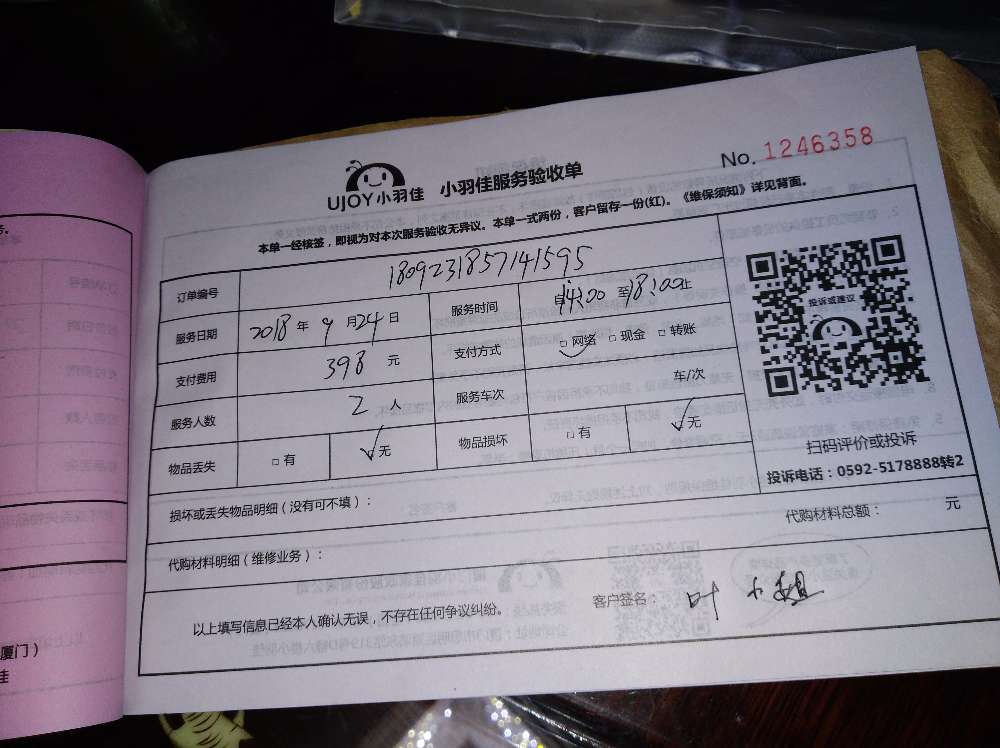 No. 1246358
UJOY小羽佳 小羽佳服务验收单
本单一经核签，即视为对本次服务验收无异议。本单一式两份，客户留存一份(红)。《维保须知》详见背面。
订单编号 1809231857141595
服务日期 2018 年 9 月 24 日 服务时间 自14:00 至18:00止
支付费用 398 元 支付方式 □ 网络 □ 现金 □ 转账
服务人数 2 人 服务车次 车/次
物品丢失 □ 有 √ 无 物品损坏 □ 有 √ 无
投诉或建议
扫码评价或投诉
投诉电话：0592-5178888转2
损坏或丢失物品明细（没有可不填）：
代购材料明细（维修业务）： 代购材料总额： 元
以上填写信息已经本人确认无误，不存在任何争议纠纷。 客户签名： 叶小姐
厦门）
佳